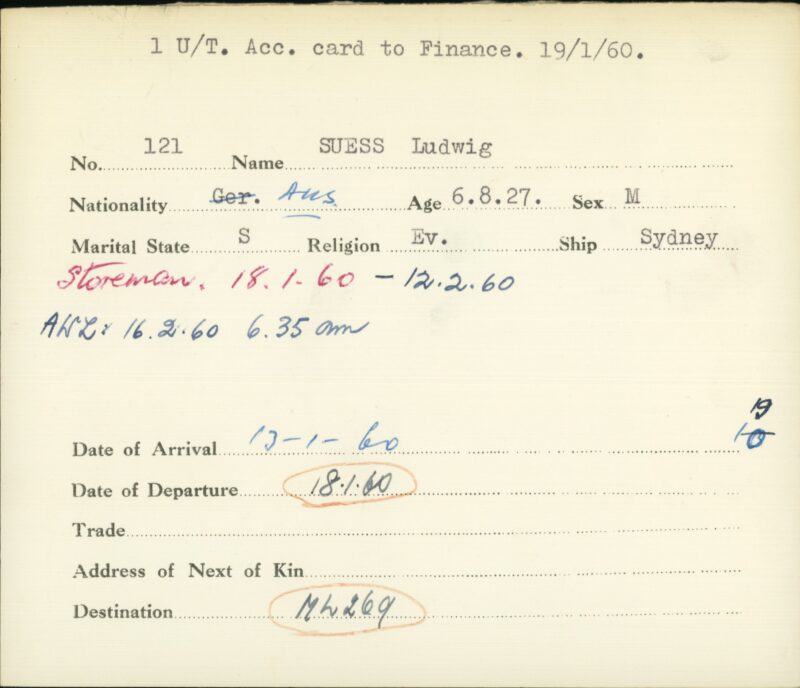 1 U/T. Acc. card to Finance. 19/1/60.
No. 121 Name SUESS Ludwig
Nationality Ger. Aus Age 6.8.27. Sex M
Marital State S Religion Ev. Ship Sydney
Storeman. 18.1.60 - 12.2.60
AWL: 16.2.60 6.35 am
19
10
Date of Arrival 13-1-60
Date of Departure 18.1.60
Trade
Address of Next of Kin
Destination ML269